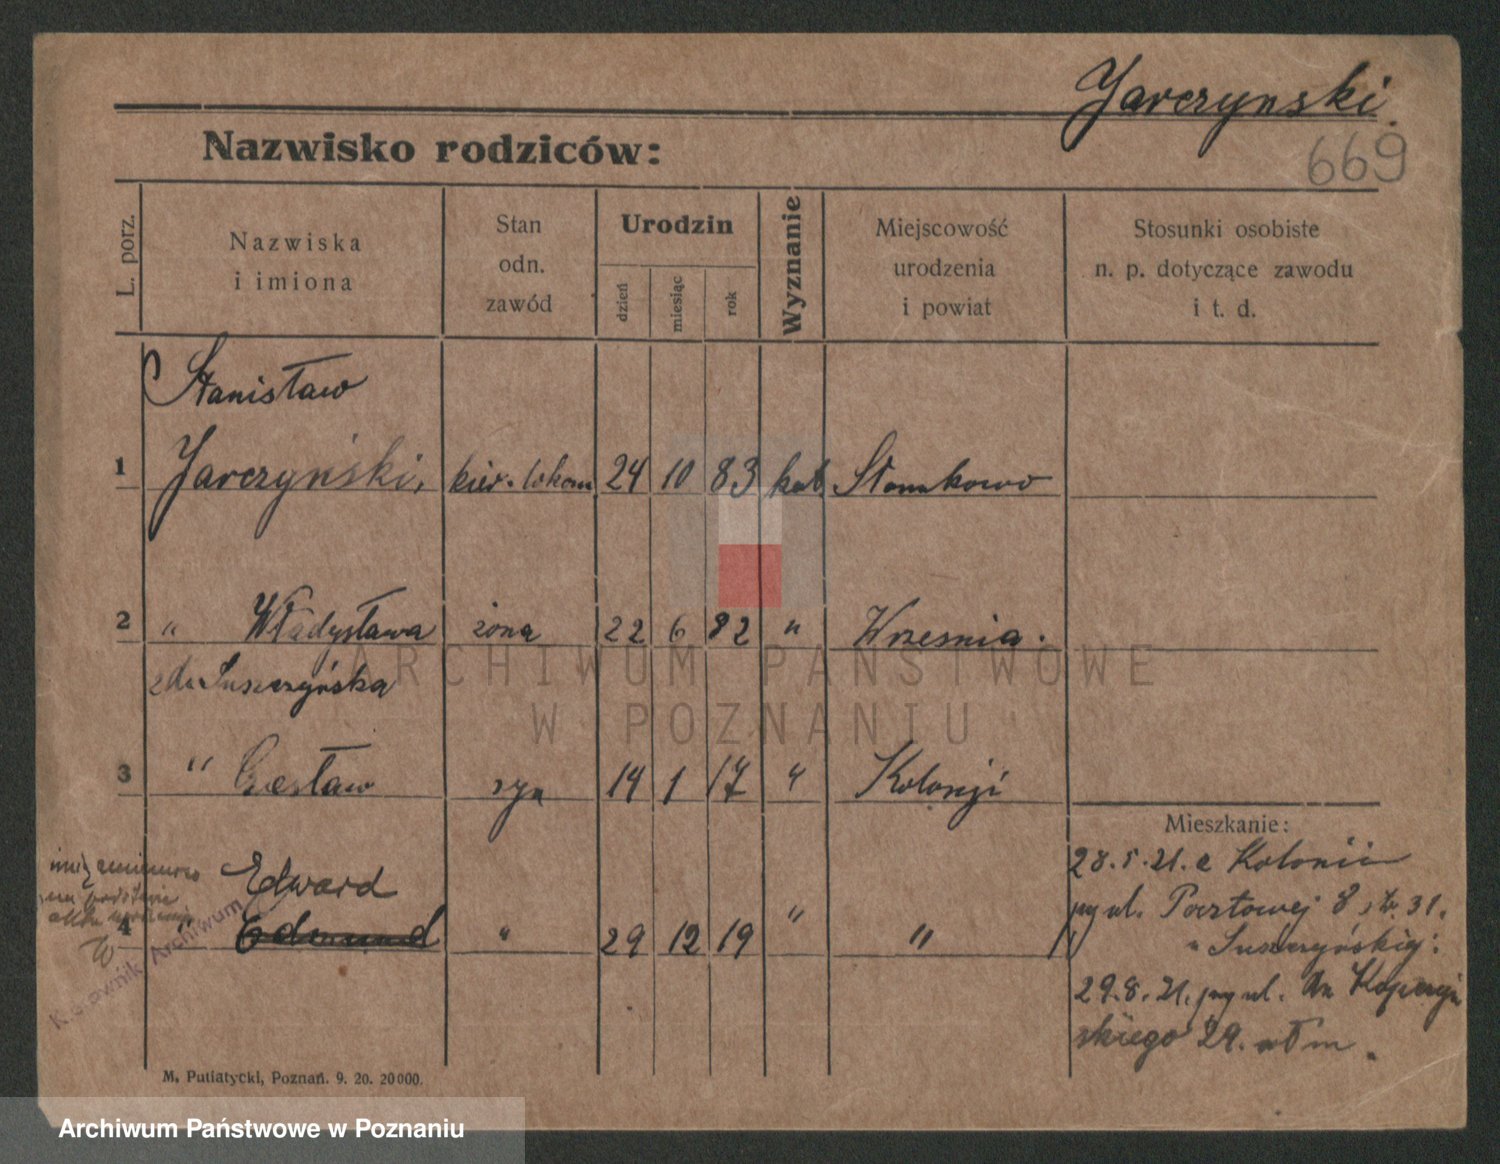 Jarczynski
669
Nazwisko rodziców:
L. porz.
Nazwiska
i imiona
Stan
odn.
zawód
Urodzin
dzień
miesiąc
rok
Wyznanie
Miejscowość
urodzenia
i powiat
Stosunki osobiste
n. p. dotyczące zawodu
i t. d.
Stanisław
1 Jarczyński, kier. lokom 24 10 83 kat Słomkowo
2 " Władysława żona 22 6 82 " Wrzesnia.
zd. Suszczyńska
3 " Czesław syn 14 1 17 " Kolonji
Mieszkanie:
28.5.21. z Kolonii
Edward
imię zmieniono
przy ul. Pocztowej 8, 31.
na podstawie
aktu urodzenia
4 " Edmund " 29 12 19 " "
" Suszczyńskiej.
29.8.21. przy ul.
skiego 29. włm.
Kierownik Archiwum
M. Putiatycki, Poznań. 9. 20. 20000.
ARCHIWUM PAŃSTWOWE
W POZNANIU
Archiwum Państwowe w Poznaniu